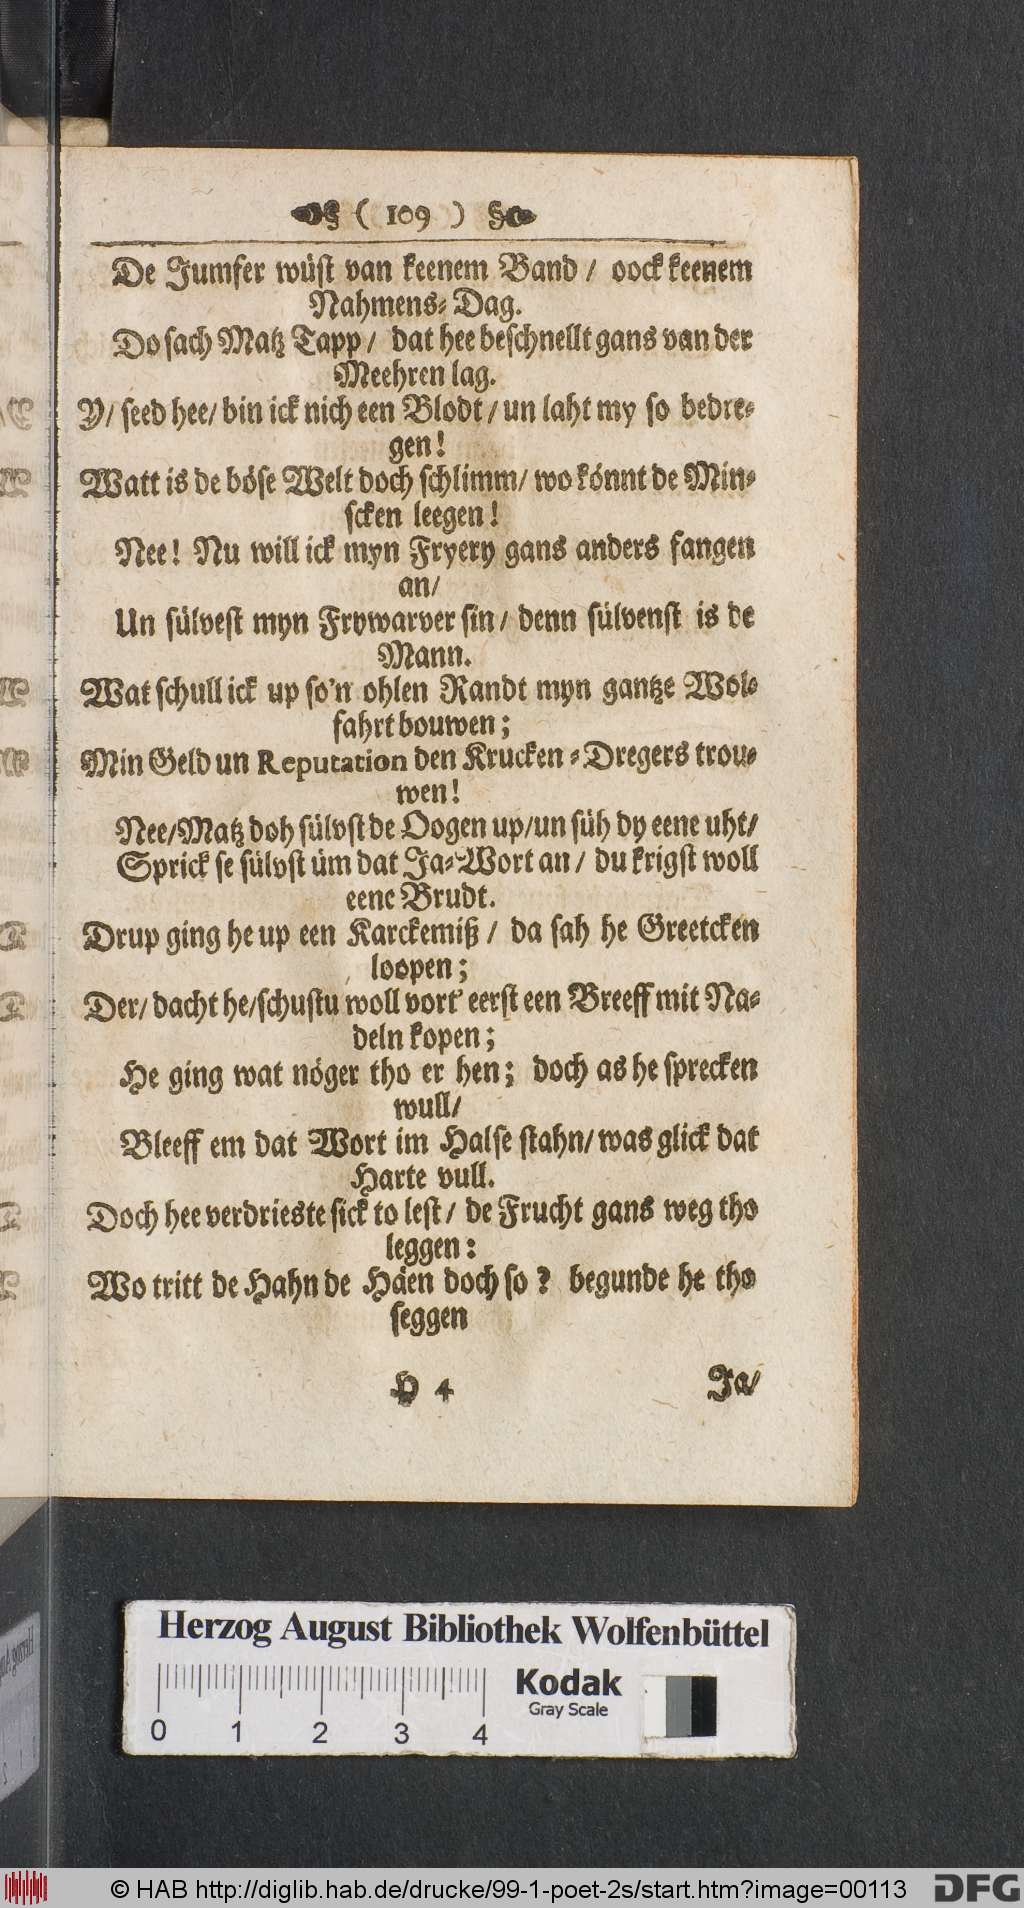 ( 109 )
De Jumfer wüst van keenem Band / oock keenem
Nahmens-Dag.
Do sach Matz Tapp / dat hee beschnellt gans van der
Meehren lag.
Y / seed hee / bin ick nich een Blodt / un laht my so bedre-
gen!
Watt is de böse Welt doch schlimm / wo könnt de Min-
scken leegen!
Nee! Nu will ick myn Fryery gans anders fangen
an /
Un sülvest myn Frywarver sin / denn sülvenst is de
Mann.
Wat schull ick up so'n ohlen Randt myn gantze Wol-
fahrt bouwen;
Min Geld un Reputation den Krucken-Dregers trou-
wen!
Nee / Matz doh sülvst de Oogen up / un süh dy eene uht /
Sprick se sülvst üm dat Ja-Wort an / du krigst woll
eene Brudt.
Drup ging he up een Karckemiß / da sah he Greetcken
loopen;
Der / dacht he / schustu woll vort' eerst een Breeff mit Na-
deln kopen;
He ging wat nöger tho er hen; doch as he sprecken
wull /
Bleeff em dat Wort im Halse stahn / was glick dat
Harte vull.
Doch hee verdrieste sick to lest / de Frucht gans weg tho
leggen:
Wo tritt de Hahn de Häen doch so? begunde he tho
seggen
H 4 Ja /
Herzog August Bibliothek Wolfenbüttel
Kodak
Gray Scale
0 1 2 3 4
© HAB http://diglib.hab.de/drucke/99-1-poet-2s/start.htm?image=00113 DFG